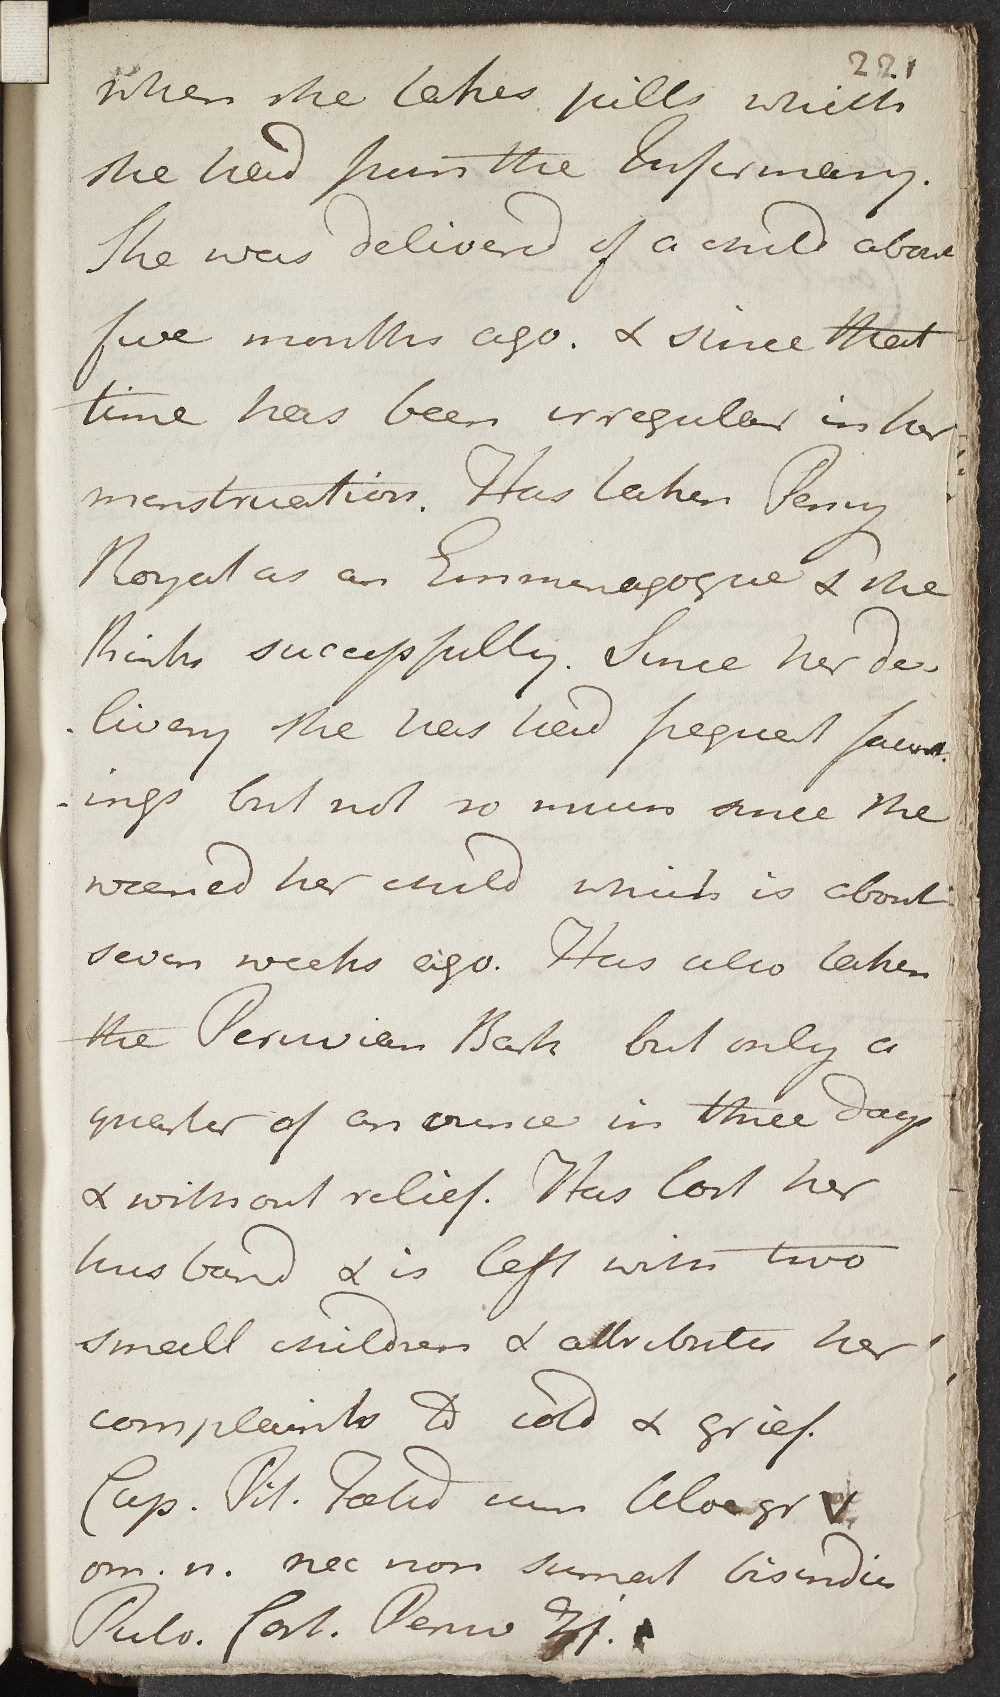 221
when she takes pills which
she had from the Infirmary.
She was deliverd of a child about
five months ago. & since that
time has been irregular in her
menstruation. Has taken Penny
Royal as an Emmenagogue & she
thinks successfully. Since her de-
-livery she has had frequent faint-
-ings but not so much since she
weaned her child which is about
seven weeks ago. Has also taken
the Peruvian Bark but only a
quarter of an ounce in three days
& without relief. Has lost her
husband & is left with two
small children & attributes her
complaints to cold & grief.
Cap. Pil. Foetid cum Aloe gr V
om. n. nec non sumat bis in die
Pulv. Cort. Peruv ʒj.